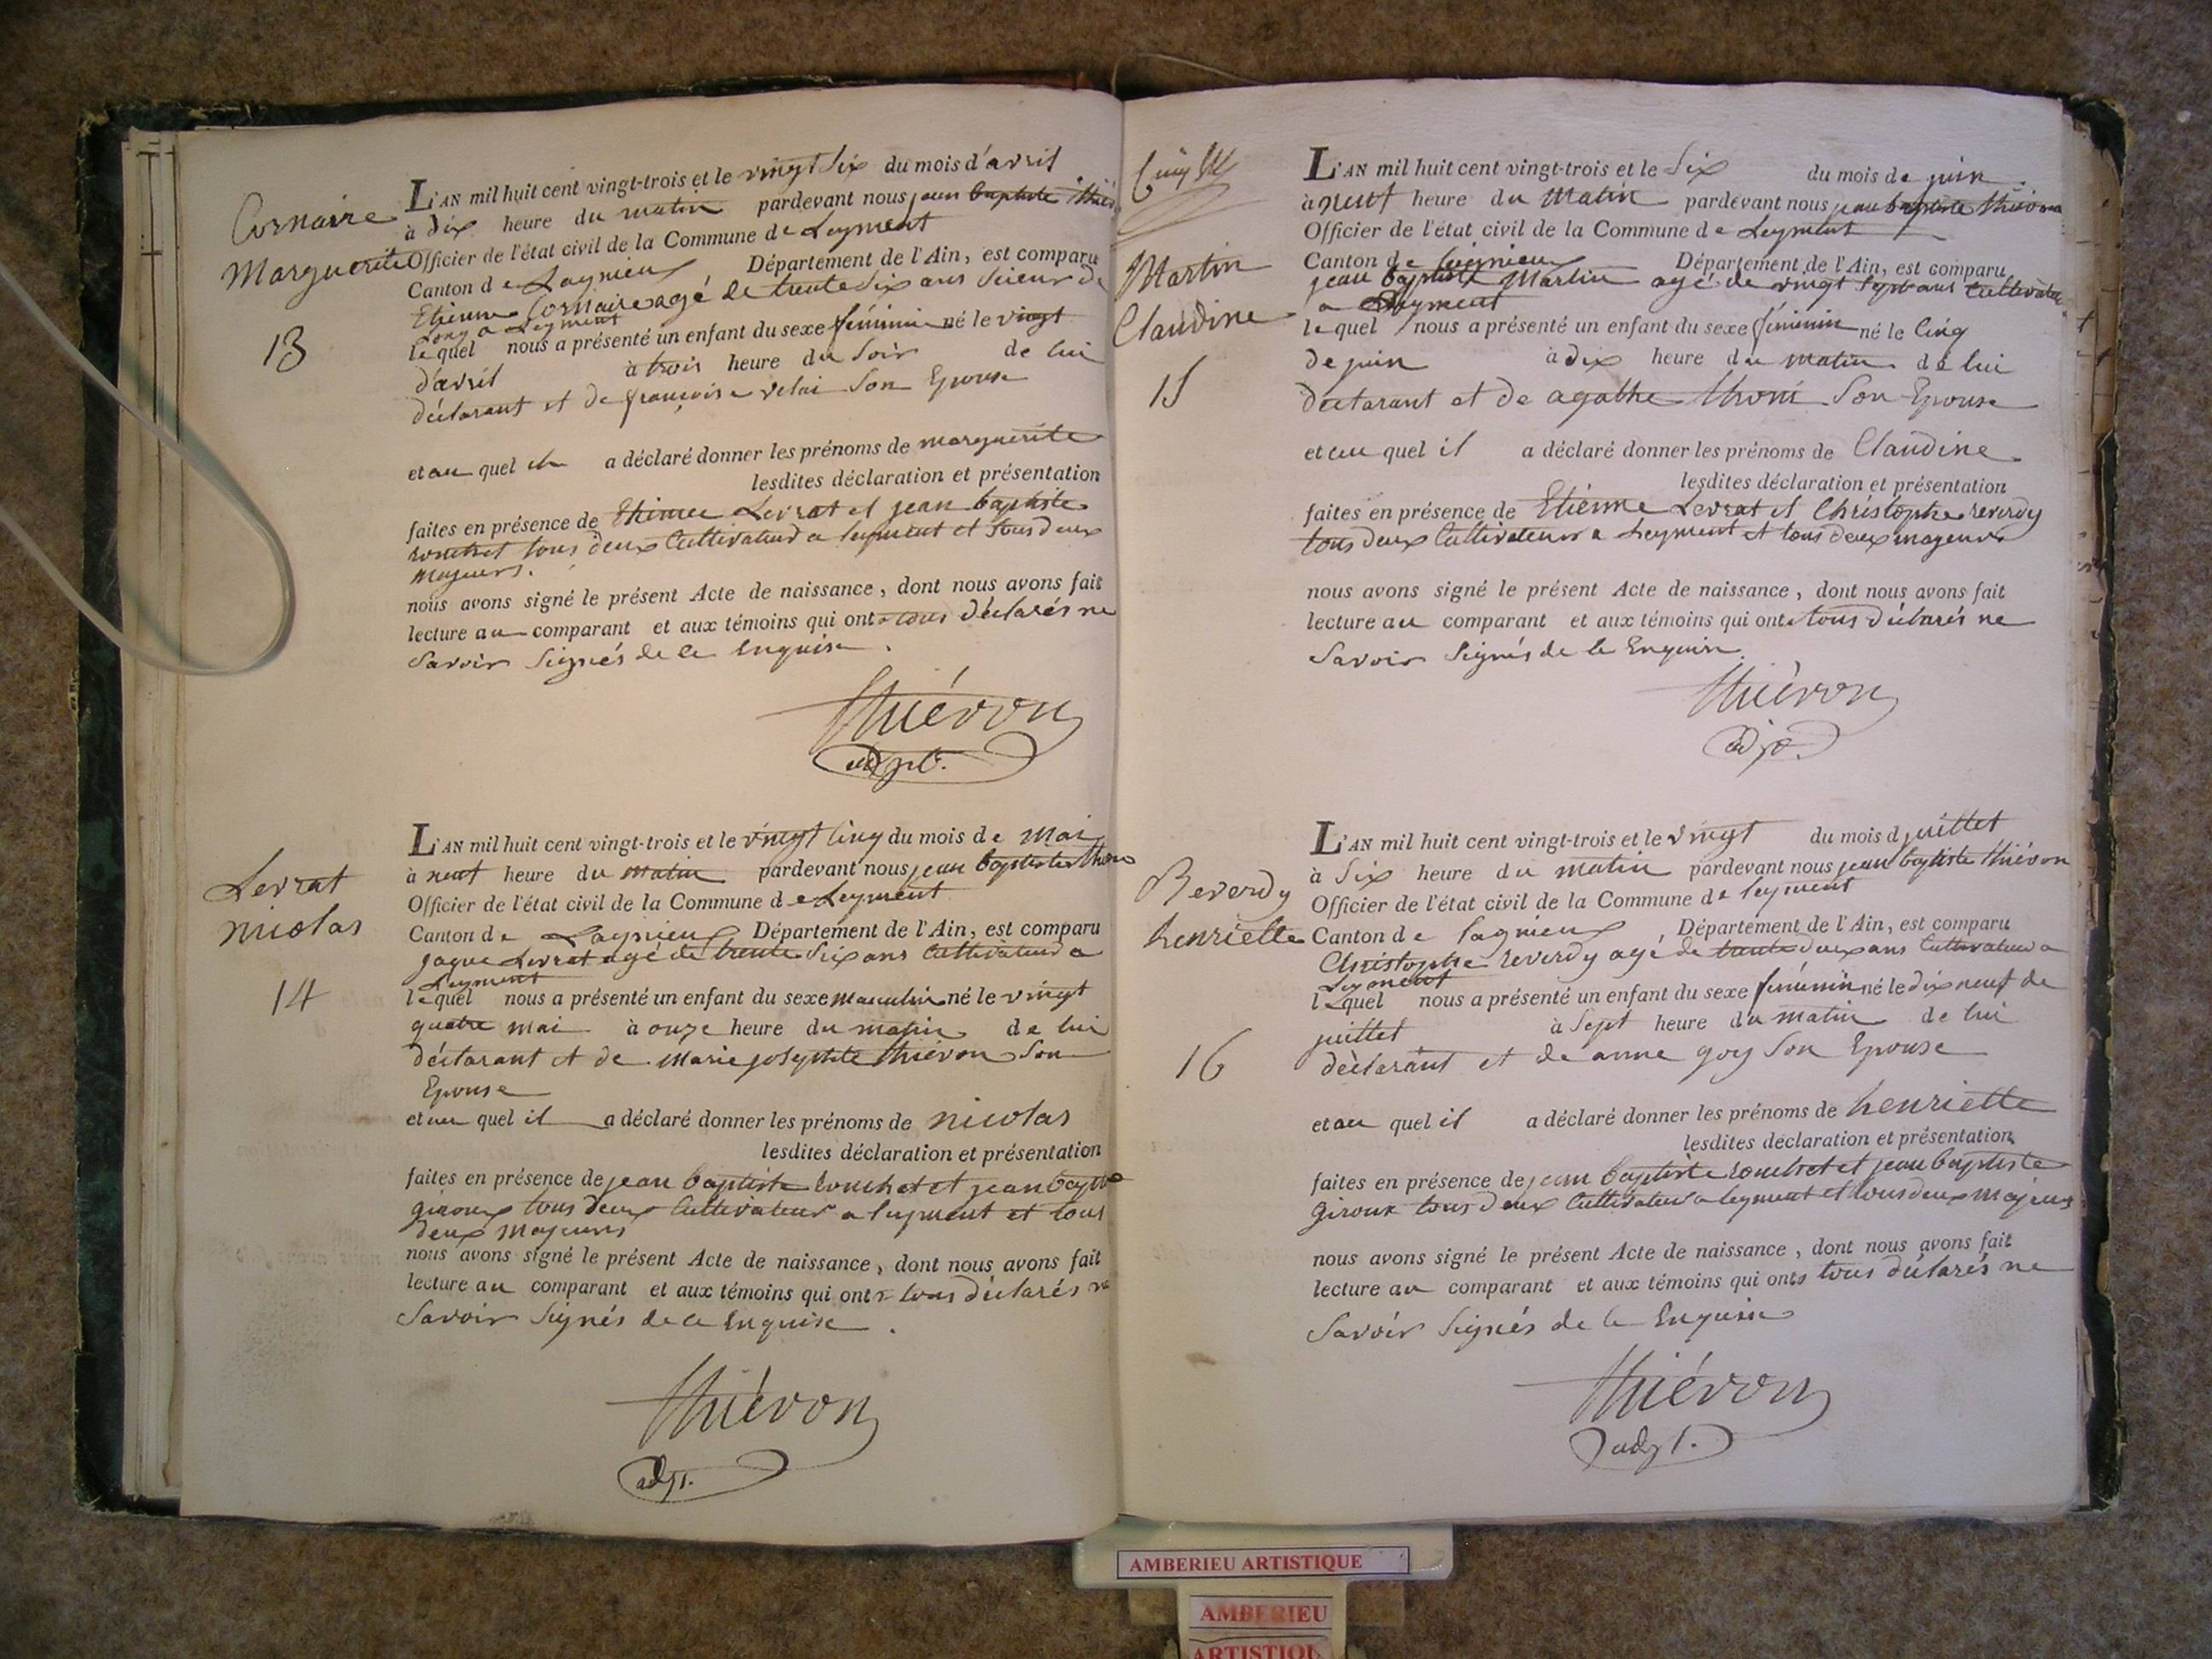 Cornaire
Marguerite
13
L'AN mil huit cent vingt-trois et le vingt six du mois d'avril
à dix heure du matin pardevant nous jean baptiste
Officier de l'état civil de la Commune de Leyment
Canton de Lagnieu Département de l'Ain, est comparu
Etienne Cornaire agé de trente six ans Scieur de
long a Leyment
lequel nous a présenté un enfant du sexe féminin né le vingt
d'avril à trois heure du soir de lui
déclarant et de françoise velai Son Epouse
et au quel il a déclaré donner les prénoms de marguerite
lesdites déclaration et présentation
faites en présence de Etienne Levrat et jean baptiste
rouchet tous deux Cultivateur a leyment et tous deux
majeurs.
nous avons signé le présent Acte de naissance, dont nous avons fait
lecture au comparant et aux témoins qui ont tous déclarés ne
Savoir Signés de ce Enquise.
Thiévon
adjt.
Levrat
nicolas
14
L'AN mil huit cent vingt-trois et le vingt cinq du mois de mai
à neuf heure du matin pardevant nous jean baptiste
Officier de l'état civil de la Commune de Leyment
Canton de Lagnieu Département de l'Ain, est comparu
jaque Levrat agé de trente six ans Cultivateur a
Leyment
lequel nous a présenté un enfant du sexe masculin né le vingt
quatre mai à onze heure du matin de lui
déclarant et de marie josephte thiévon Son
Epouse
et au quel il a déclaré donner les prénoms de nicolas
lesdites déclaration et présentation
faites en présence de jean baptiste rouchet et jean bapte
giroux tous deux Cultivateur a leyment et tous
deux majeurs
nous avons signé le présent Acte de naissance, dont nous avons fait
lecture au comparant et aux témoins qui ont tous déclarés ne
Savoir Signés de ce Enquise.
Thiévon
adjt.
Martin
Claudine
15
L'AN mil huit cent vingt-trois et le Six du mois de juin
à neuf heure du matin pardevant nous jean baptiste thiévon
Officier de l'état civil de la Commune de Leyment
Canton de Lagnieu Département de l'Ain, est comparu
jean baptiste Martin agé de vingt Sept ans Cultivateur
a Leyment
lequel nous a présenté un enfant du sexe féminin né le Cinq
de juin à dix heure du matin de lui
déclarant et de agathe Son Epouse
et au quel il a déclaré donner les prénoms de Claudine
lesdites déclaration et présentation
faites en présence de Etienne Levrat et Christophe reverdy
tous deux Cultivateur a Leyment et tous deux mageurs
nous avons signé le présent Acte de naissance, dont nous avons fait
lecture au comparant et aux témoins qui ont tous déclarés ne
Savoir Signés de ce Enquise.
Thiévon
adjt.
Reverdy
henriette
16
L'AN mil huit cent vingt-trois et le vingt du mois d juillet
à Six heure du matin pardevant nous jean baptiste thiévon
Officier de l'état civil de la Commune de leyment
Canton de lagnieu Département de l'Ain, est comparu
Christophe reverdy agé de trente deux ans Cultivateur a
Leyment
lequel nous a présenté un enfant du sexe féminin né le dix neuf de
juillet à Sept heure du matin de lui
déclarant et de anne goy Son Epouse
et au quel il a déclaré donner les prénoms de henriette
lesdites déclaration et présentation
faites en présence de jean baptiste rouchet et jean baptiste
giroux tous deux Cultivateur a leyment et tous deux majeurs
nous avons signé le présent Acte de naissance, dont nous avons fait
lecture au comparant et aux témoins qui ont tous déclarés ne
Savoir Signés de ce Enquise
Thiévon
adjt.
AMBERIEU ARTISTIQUE
AMBERIEU
ARTISTIQU